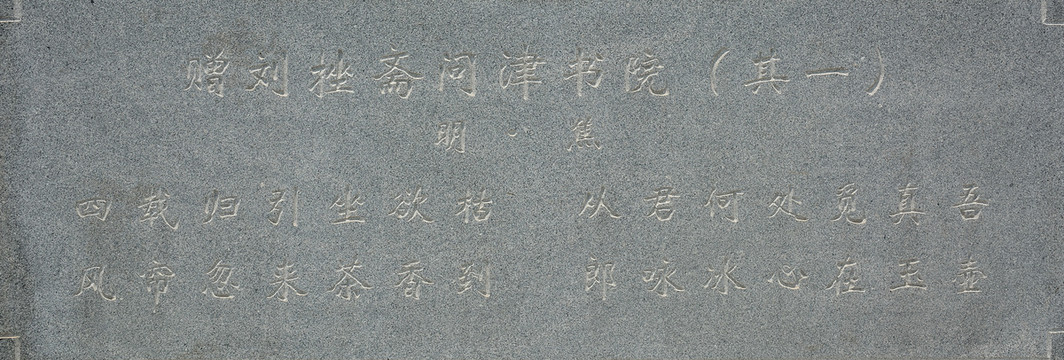 赠刘挫斋问津书院（其一）
明 焦
四载归引坐欲枯 从君何处觅真吾
风帘忽来茶香到 郎咏冰心在玉壶